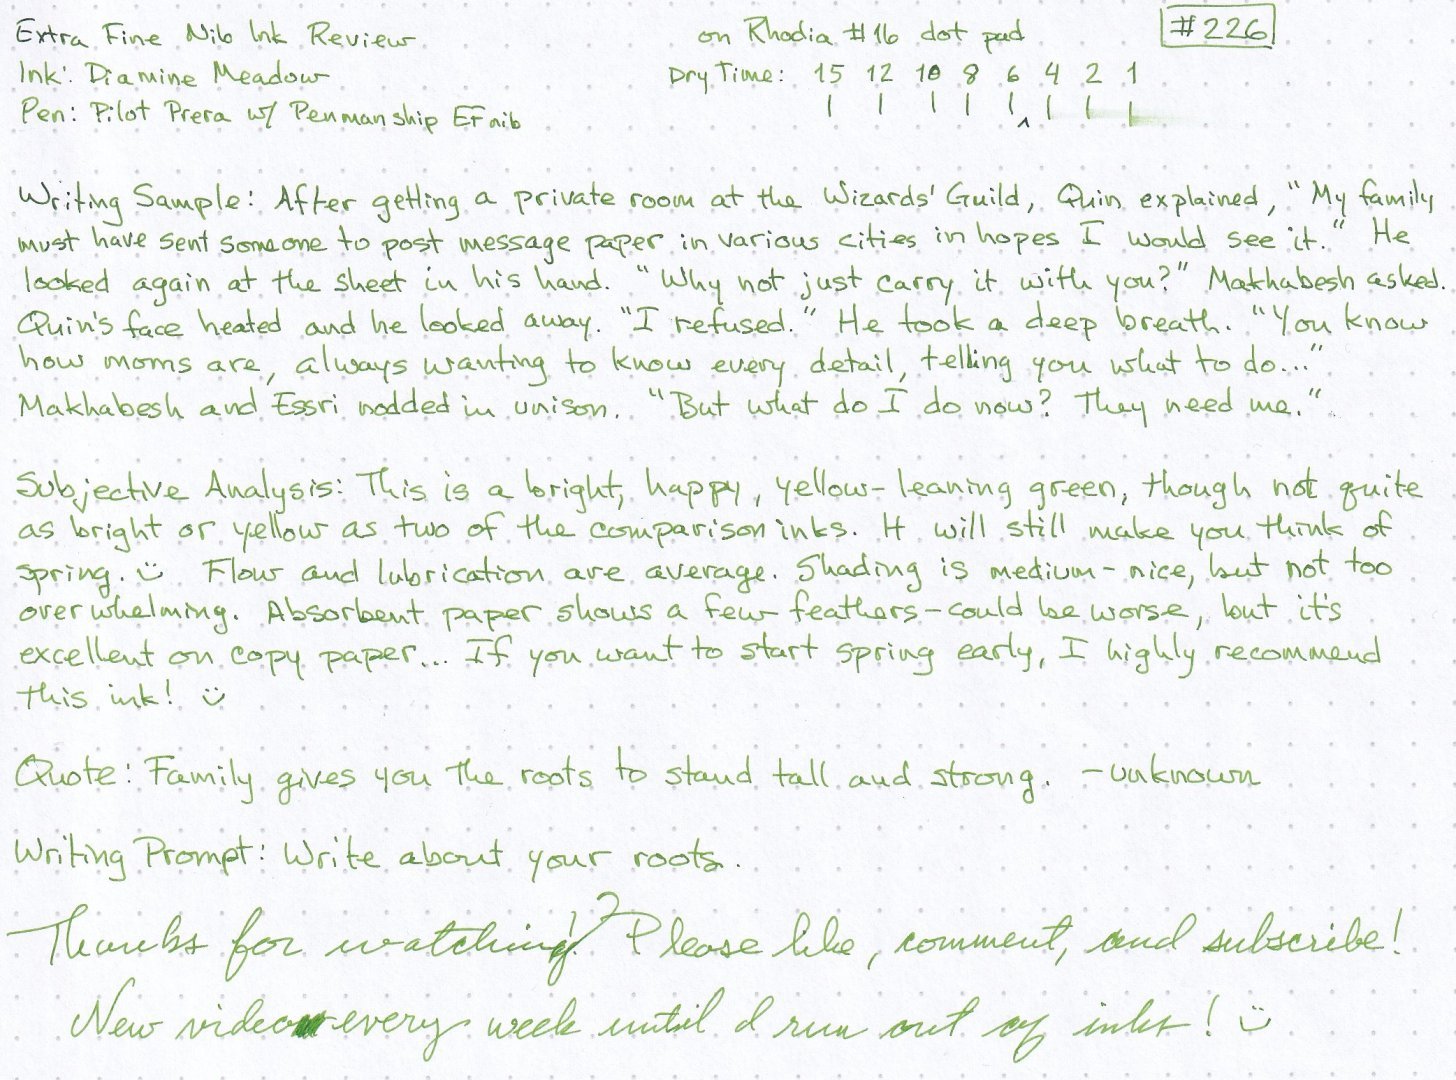 Extra Fine Nib Ink Review on Rhodia #16 dot pad #226
Ink: Diamine Meadow Dry Time: 15 12 10 8 6 4 2 1
Pen: Pilot Prera w/ Penmanship EF nib
Writing Sample: After getting a private room at the Wizards' Guild, Quin explained, "My family
must have sent someone to post message paper in various cities in hopes I would see it." He
looked again at the sheet in his hand. "Why not just carry it with you?" Makhabesh asked.
Quin's face heated and he looked away. "I refused." He took a deep breath. "You know
how moms are, always wanting to know every detail, telling you what to do..."
Makhabesh and Essri nodded in unison. "But what do I do now? They need me."
Subjective Analysis: This is a bright, happy, yellow-leaning green, though not quite
as bright or yellow as two of the comparison inks. It will still make you think of
spring. :) Flow and lubrication are average. Shading is medium - nice, but not too
overwhelming. Absorbent paper shows a few feathers - could be worse, but it's
excellent on copy paper... If you want to start spring early, I highly recommend
this ink! :)
Quote: Family gives you the roots to stand tall and strong. - unknown
Writing Prompt: Write about your roots.
Thanks for watching! Please like, comment, and subscribe!
New video every week until I run out of inks! :)